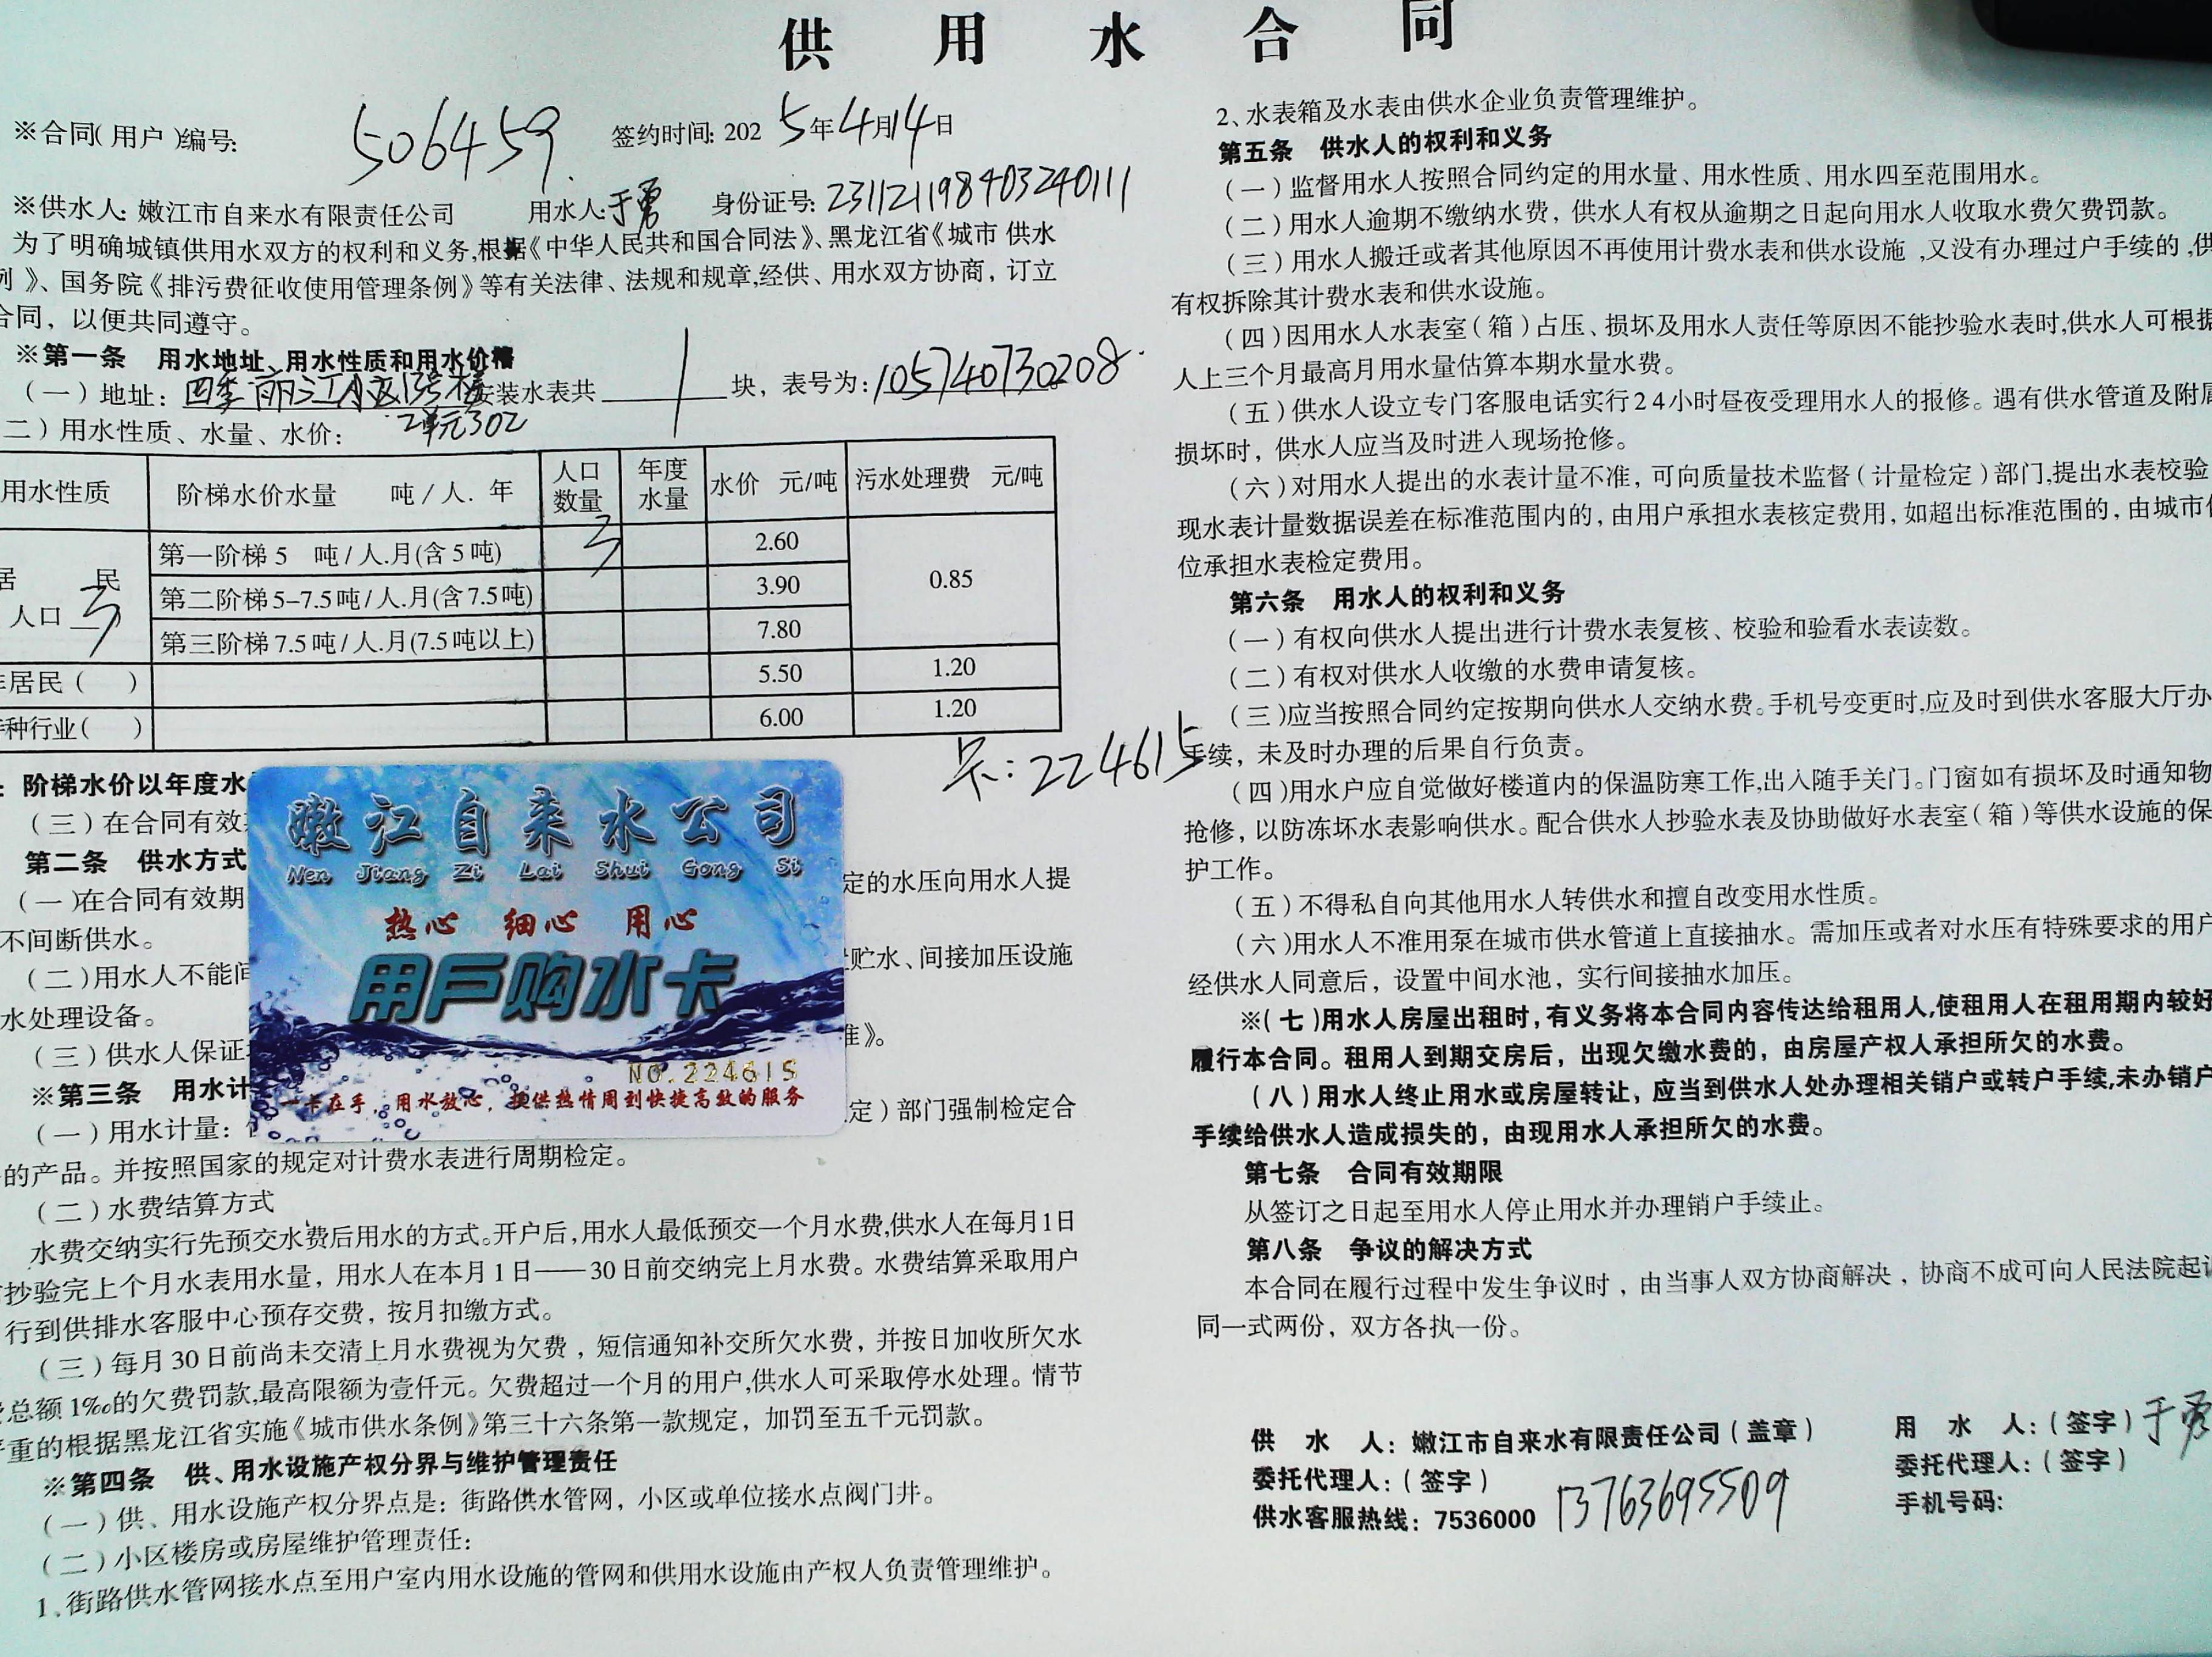 供 用 水 合 同
※合同(用户)编号: 506459 签约时间: 2025年4月14日
※供水人: 嫩江市自来水有限责任公司 用水人: 于勇 身份证号: 231121198403240111
为了明确城镇供用水双方的权利和义务,根据《中华人民共和国合同法》、黑龙江省《城市 供水
例》、国务院《排污费征收使用管理条例》等有关法律、法规和规章,经供、用水双方协商，订立
合同，以便共同遵守。
※第一条 用水地址、用水性质和用水价格
(一)地址: 四季丽江小区13号楼2单元302 安装水表共 1 块，表号为: 105740730208.
二)用水性质、水量、水价:
用水性质 阶梯水价水量 吨/人. 年 人口数量 年度水量 水价 元/吨 污水处理费 元/吨
居 民 人口 3 第一阶梯5 吨/人.月(含5吨) 3 2.60 0.85
第二阶梯5-7.5吨/人.月(含7.5吨) 3.90
第三阶梯7.5吨/人.月(7.5吨以上) 7.80
居民( ) 5.50 1.20
种行业( ) 6.00 1.20
卡: 224615
: 阶梯水价以年度水
(三)在合同有效
第二条 供水方式
(一)在合同有效期
定的水压向用水人提
不间断供水。
(二)用水人不能间
贮水、间接加压设施
水处理设备。
(三)供水人保证
准》。
※第三条 用水计
(一)用水计量:
定)部门强制检定合
的产品。并按照国家的规定对计费水表进行周期检定。
(二)水费结算方式
水费交纳实行先预交水费后用水的方式。开户后,用水人最低预交一个月水费,供水人在每月1日
抄验完上个月水表用水量，用水人在本月1日——30日前交纳完上月水费。水费结算采取用户
行到供排水客服中心预存交费，按月扣缴方式。
(三)每月30日前尚未交清上月水费视为欠费，短信通知补交所欠水费，并按日加收所欠水
总额1‰的欠费罚款,最高限额为壹仟元。欠费超过一个月的用户,供水人可采取停水处理。情节
重的根据黑龙江省实施《城市供水条例》第三十六条第一款规定，加罚至五千元罚款。
※第四条 供、用水设施产权分界与维护管理责任
(一)供、用水设施产权分界点是: 街路供水管网，小区或单位接水点阀门井。
(二)小区楼房或房屋维护管理责任:
1、街路供水管网接水点至用户室内用水设施的管网和供用水设施由产权人负责管理维护。
嫩江自来水公司
Nen Jiang Zi Lai Shui Gong Si
热心 细心 用心
用户购水卡
NO.224615
一卡在手，用水放心，提供热情周到快捷高效的服务
2、水表箱及水表由供水企业负责管理维护。
第五条 供水人的权利和义务
(一)监督用水人按照合同约定的用水量、用水性质、用水四至范围用水。
(二)用水人逾期不缴纳水费，供水人有权从逾期之日起向用水人收取水费欠费罚款。
(三)用水人搬迁或者其他原因不再使用计费水表和供水设施,又没有办理过户手续的,供
有权拆除其计费水表和供水设施。
(四)因用水人水表室(箱)占压、损坏及用水人责任等原因不能抄验水表时,供水人可根据
人上三个月最高月用水量估算本期水量水费。
(五)供水人设立专门客服电话实行24小时昼夜受理用水人的报修。遇有供水管道及附属
损坏时，供水人应当及时进入现场抢修。
(六)对用水人提出的水表计量不准，可向质量技术监督(计量检定)部门,提出水表校验
现水表计量数据误差在标准范围内的，由用户承担水表核定费用，如超出标准范围的，由城市供
位承担水表检定费用。
第六条 用水人的权利和义务
(一)有权向供水人提出进行计费水表复核、校验和验看水表读数。
(二)有权对供水人收缴的水费申请复核。
(三)应当按照合同约定按期向供水人交纳水费。手机号变更时,应及时到供水客服大厅办
手续，未及时办理的后果自行负责。
(四)用水户应自觉做好楼道内的保温防寒工作,出入随手关门。门窗如有损坏及时通知物
抢修，以防冻坏水表影响供水。配合供水人抄验水表及协助做好水表室(箱)等供水设施的保
护工作。
(五)不得私自向其他用水人转供水和擅自改变用水性质。
(六)用水人不准用泵在城市供水管道上直接抽水。需加压或者对水压有特殊要求的用户
经供水人同意后，设置中间水池，实行间接抽水加压。
※(七)用水人房屋出租时,有义务将本合同内容传达给租用人,使租用人在租用期内较好
履行本合同。租用人到期交房后，出现欠缴水费的，由房屋产权人承担所欠的水费。
(八)用水人终止用水或房屋转让，应当到供水人处办理相关销户或转户手续,未办销户
手续给供水人造成损失的，由现用水人承担所欠的水费。
第七条 合同有效期限
从签订之日起至用水人停止用水并办理销户手续止。
第八条 争议的解决方式
本合同在履行过程中发生争议时，由当事人双方协商解决，协商不成可向人民法院起诉
同一式两份，双方各执一份。
供 水 人: 嫩江市自来水有限责任公司(盖章)
委托代理人:(签字)
供水客服热线: 7536000 13763695509
用 水 人:(签字) 于勇
委托代理人:(签字)
手机号码: